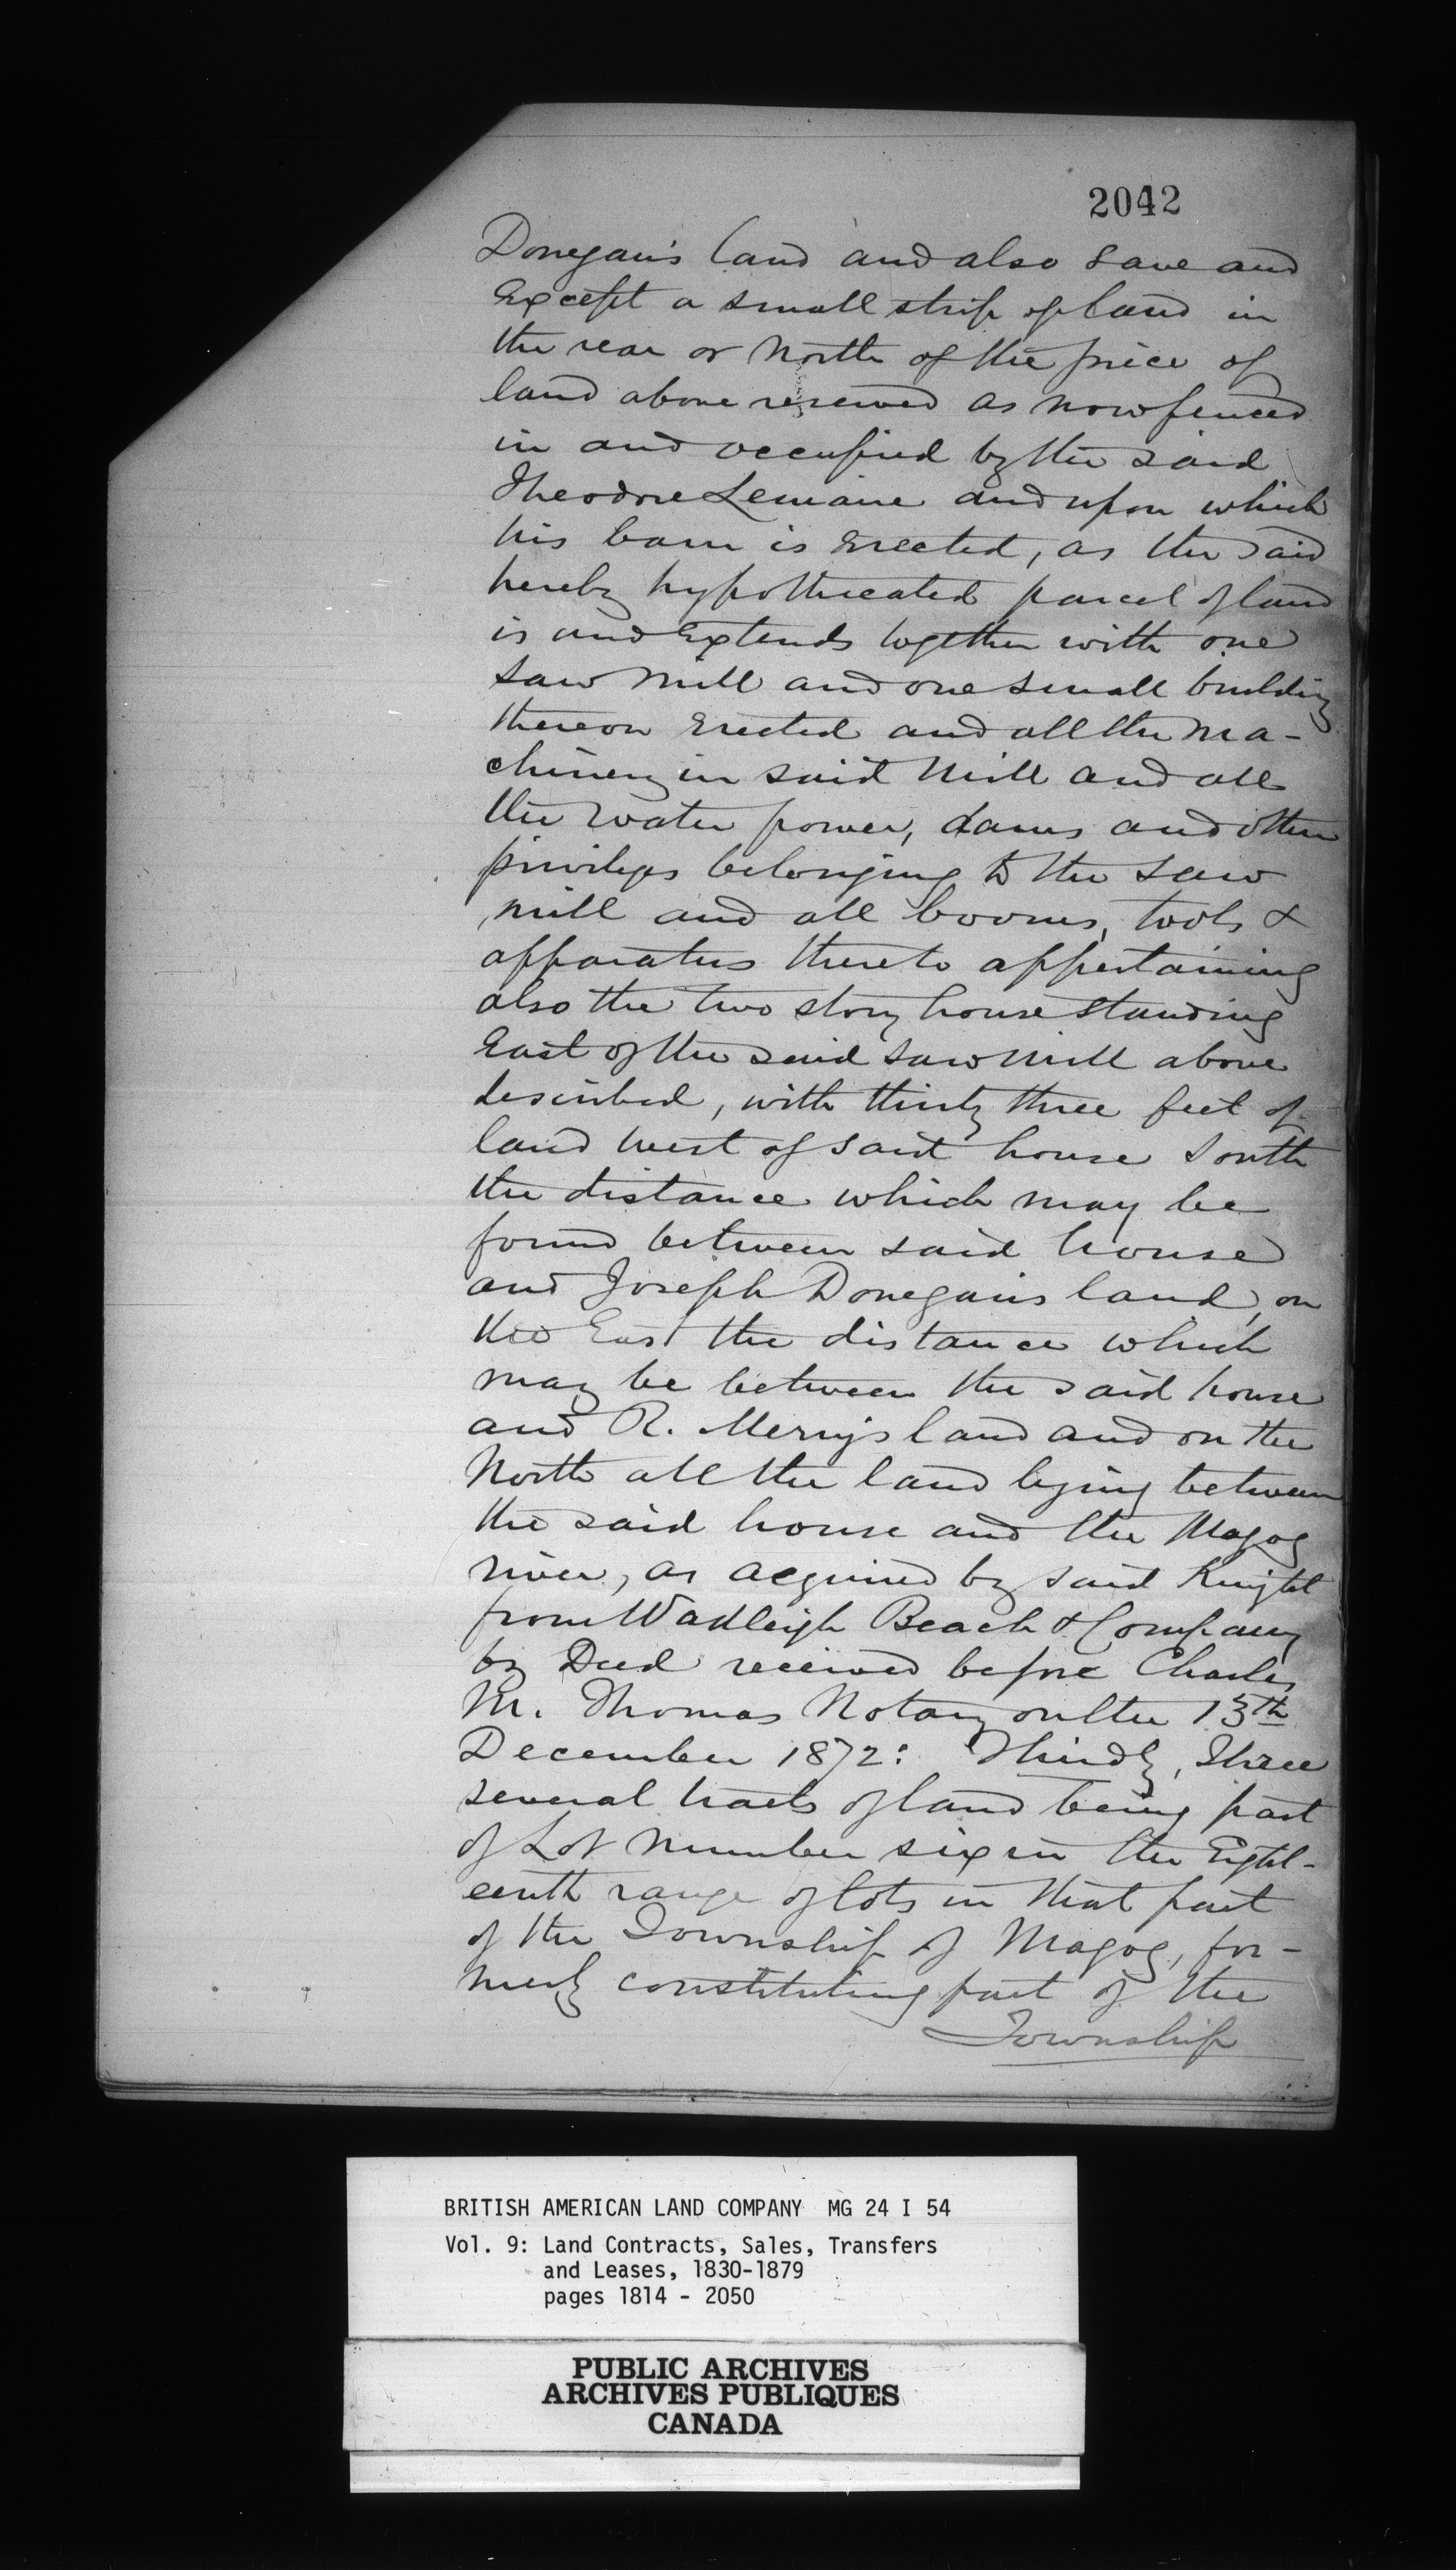 2042
Donegan's land and also save and
Except a small strip of land in
the rear or North of the piece of
land above reserved as now fenced
in and occupied by the said
Theodore Lemaire and upon which
his barn is Erected, as the said
hereby hypothecated parcel of land
is and Extends together with one
saw mill and one small building
thereon Erected and all the ma-
chinery in said Mill and all
the water power, dams and other
privileges belonging to the saw
mill and all booms, tools &
apparatus thereto appertaining
also the two story house standing
East of the said saw mill above
described, with thirty three feet of
land West of said house South
the distance which may be
found between said house
and Joseph Donegan's land, on
the East the distance which
may be between the said house
and R. Merry's land and on the
North all the land lying between
the said house and the Magog
river, as acquired by said Knight
from Wadleigh Beach & Company
by Deed received before Charles
M. Thomas Notary on the 13th
December 1872: Thirdly, Three
several tracts of land being part
of Lot Number six in the Eight-
eenth range of lots in that part
of the Township of Magog, for-
merly constituting part of the
Township
BRITISH AMERICAN LAND COMPANY MG 24 I 54
Vol. 9: Land Contracts, Sales, Transfers
and Leases, 1830-1879
pages 1814 - 2050
PUBLIC ARCHIVES
ARCHIVES PUBLIQUES
CANADA